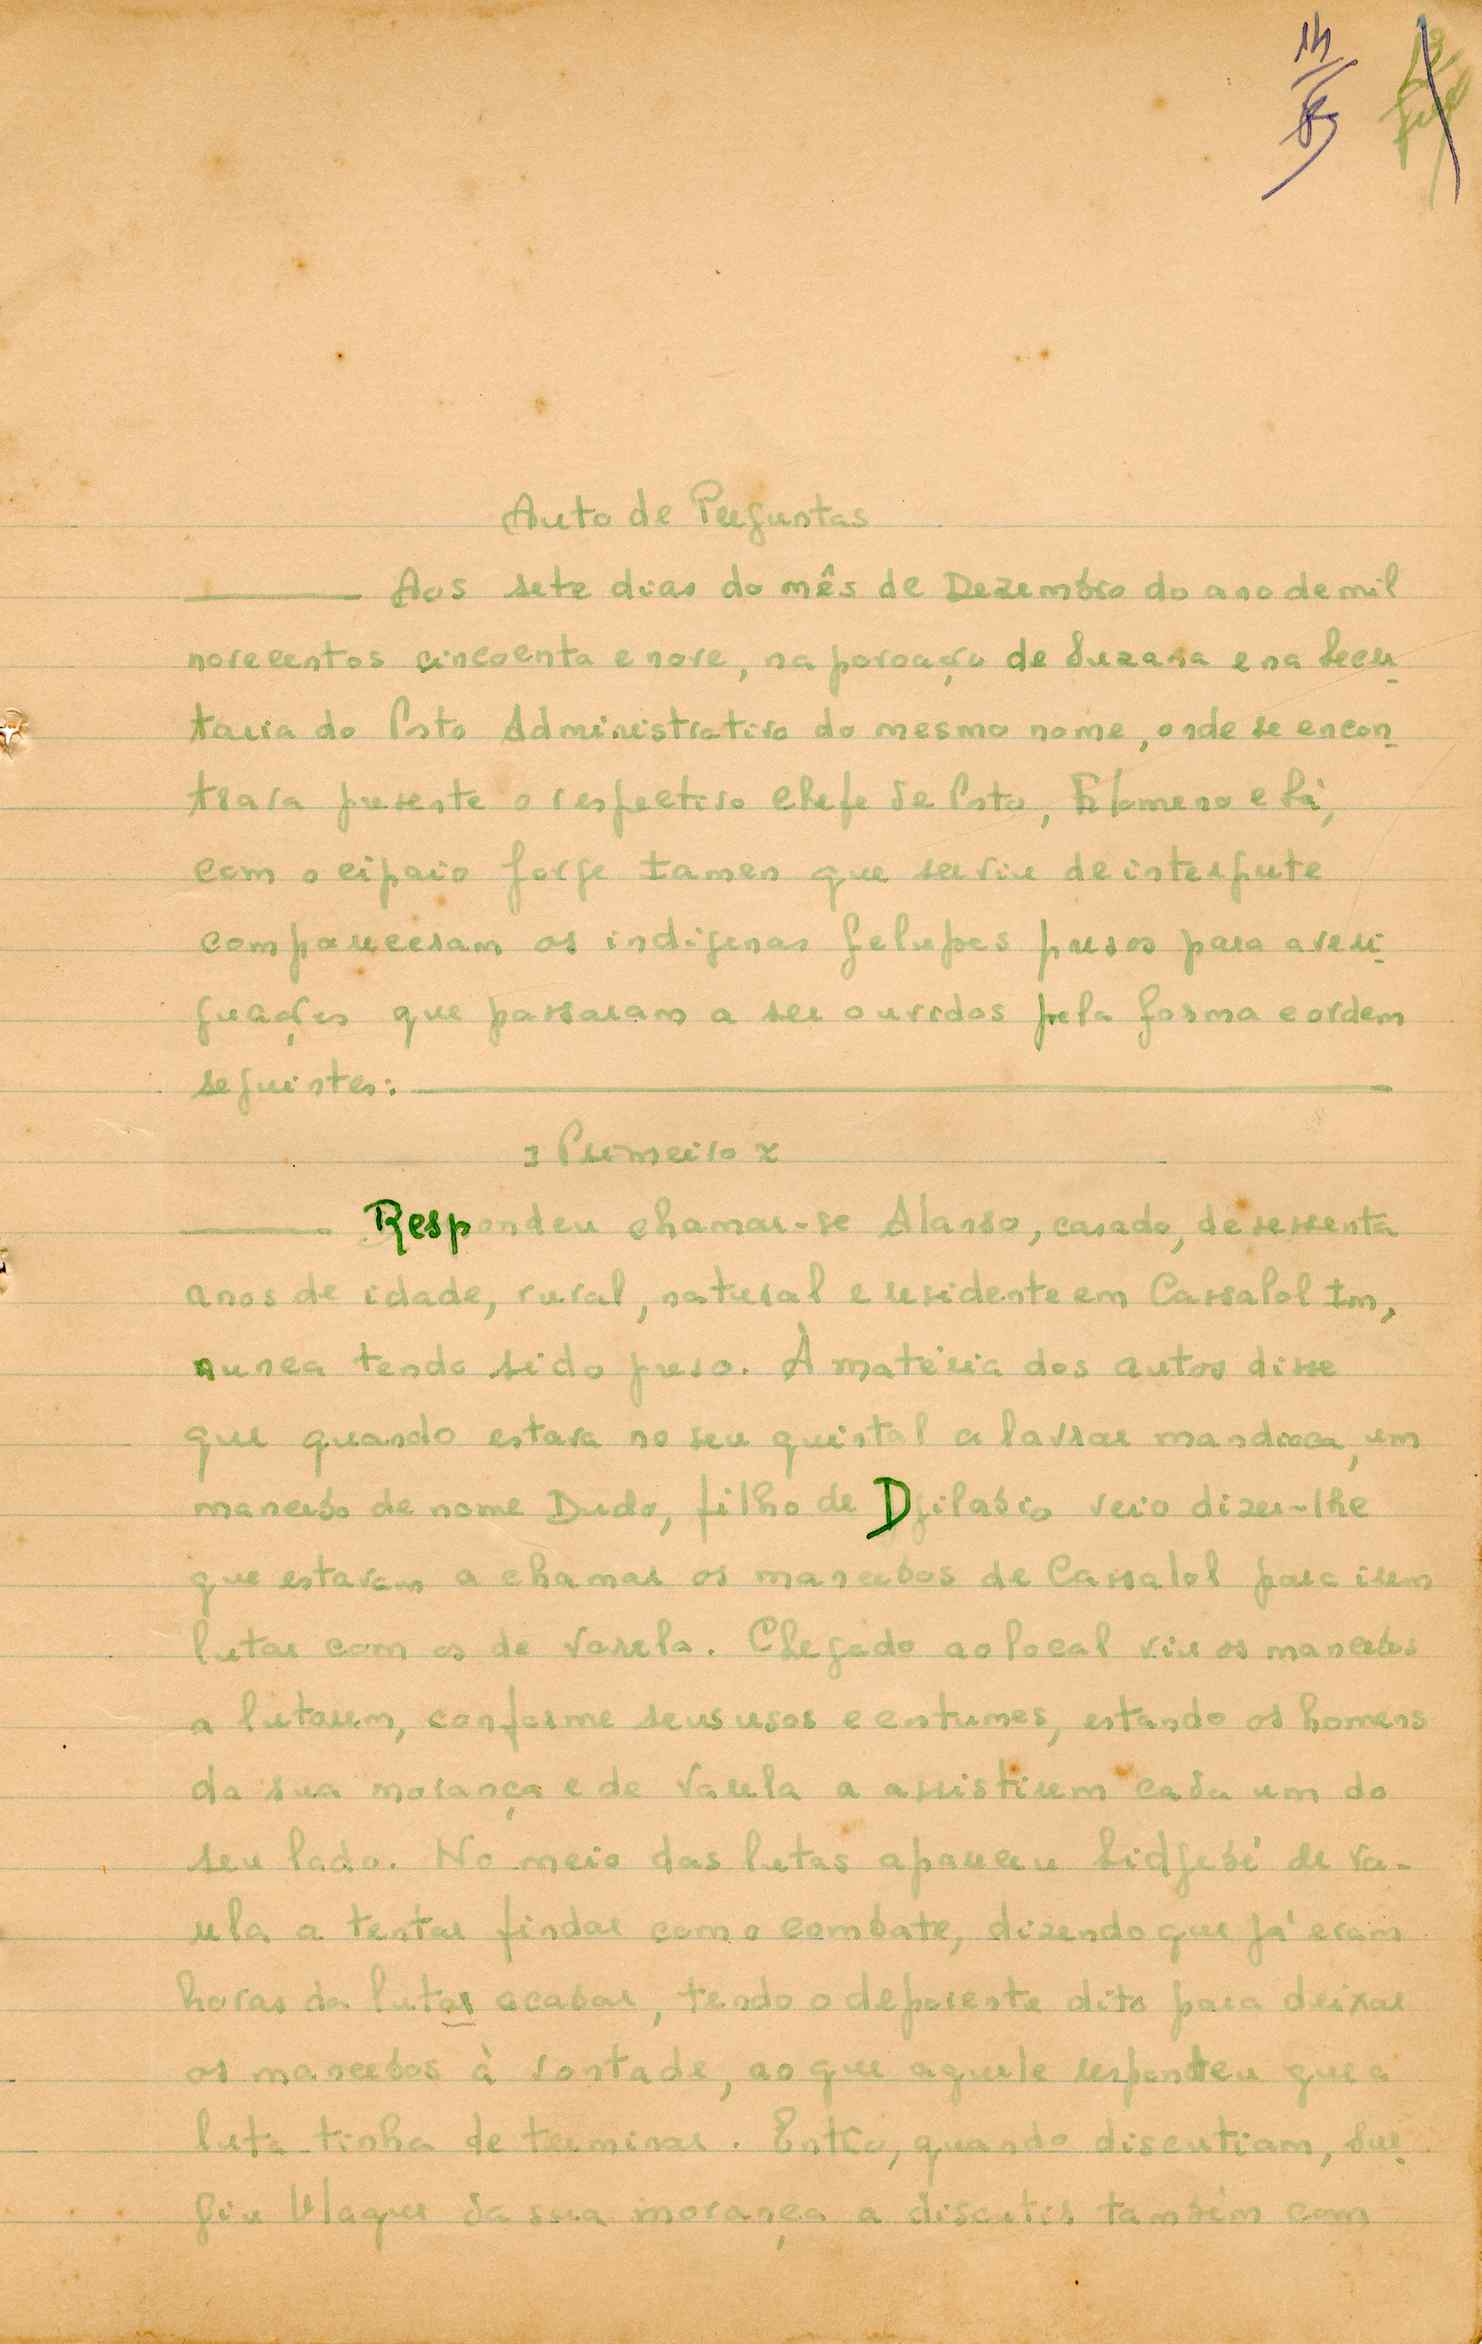 14
Auto de Perguntas
Aos sete dias do mês de Dezembro do ano de mil
novecentos cincoenta e nove, na povoação de Suzana e na Secre-
taria do Posto Administrativo do mesmo nome, onde se encon-
trava presente o respectivo Chefe de Posto, Filomeno e Sá,
com o cipaio Jorge Tamen que serviu de interprete
compareceram os indígenas felupes presos para averi-
guações que passaram a ser ouvidos pela forma e ordem
seguintes:
Primeiro
Respondeu chamar-se Alanso, casado, de sessenta
anos de idade, rural, natural e residente em Cassalol
nunca tendo sido preso. À matéria dos autos disse
que quando estava no seu quintal a lavrar mandioca, um
mancebo de nome Dudo, filho de Djilabio veio dizer-lhe
que estavam a chamar os mancebos de Cassalol para irem
lutar com os de Varela. Chegado ao local viu os mancebos
a lutarem, conforme seus usos e costumes, estando os homens
da sua morança e de Varela a assistirem cada um do
seu lado. No meio das lutas apareceu Sidjebé de Va-
rela a tentar findar com o combate, dizendo que já eram
horas da lutas acabar, tendo o deponente dito para deixar
os mancebos à vontade, ao que aquele respondeu que a
luta tinha de terminar. Então, quando discutiam, sur-
giu Ulaquer da sua morança a discutir também com